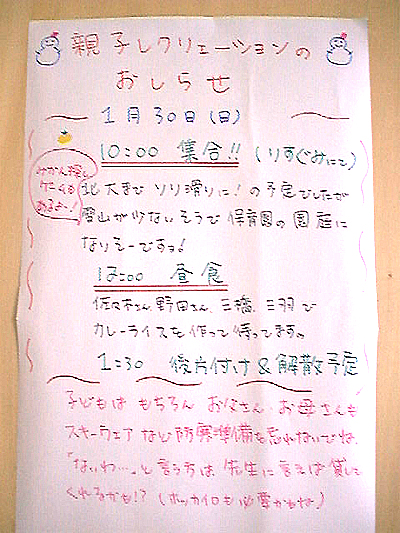 親子レクリェーションの
おしらせ
1月30日(日)
10:00 集合!! (りすぐみにて)
みかん探し
ゲームも
あるよー!
北大まで ソリ滑りに! の予定でしたが
雪山が少ないそうで 保育園の園庭に
なりそーですョ!
12:00 昼食
佐々木さん、野田さん、三橋、三羽で
カレーライスを作って待ってます。
1:30 後片付け&解散予定
子どもは もちろん お父さん・お母さんも
スキーウェア など防寒準備を忘れないでね。
「ないわ…」と言う方は、先生に言えば貸して
くれるかも!? (ホッカイロも必要かもね)